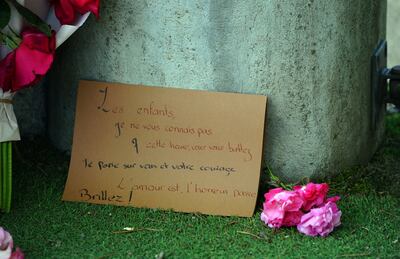 Les enfants,
je ne vous connais pas
cette heure, vous vous battez
Je pense sur vous et votre courage
L'amour est, l'honneur
Brillez!